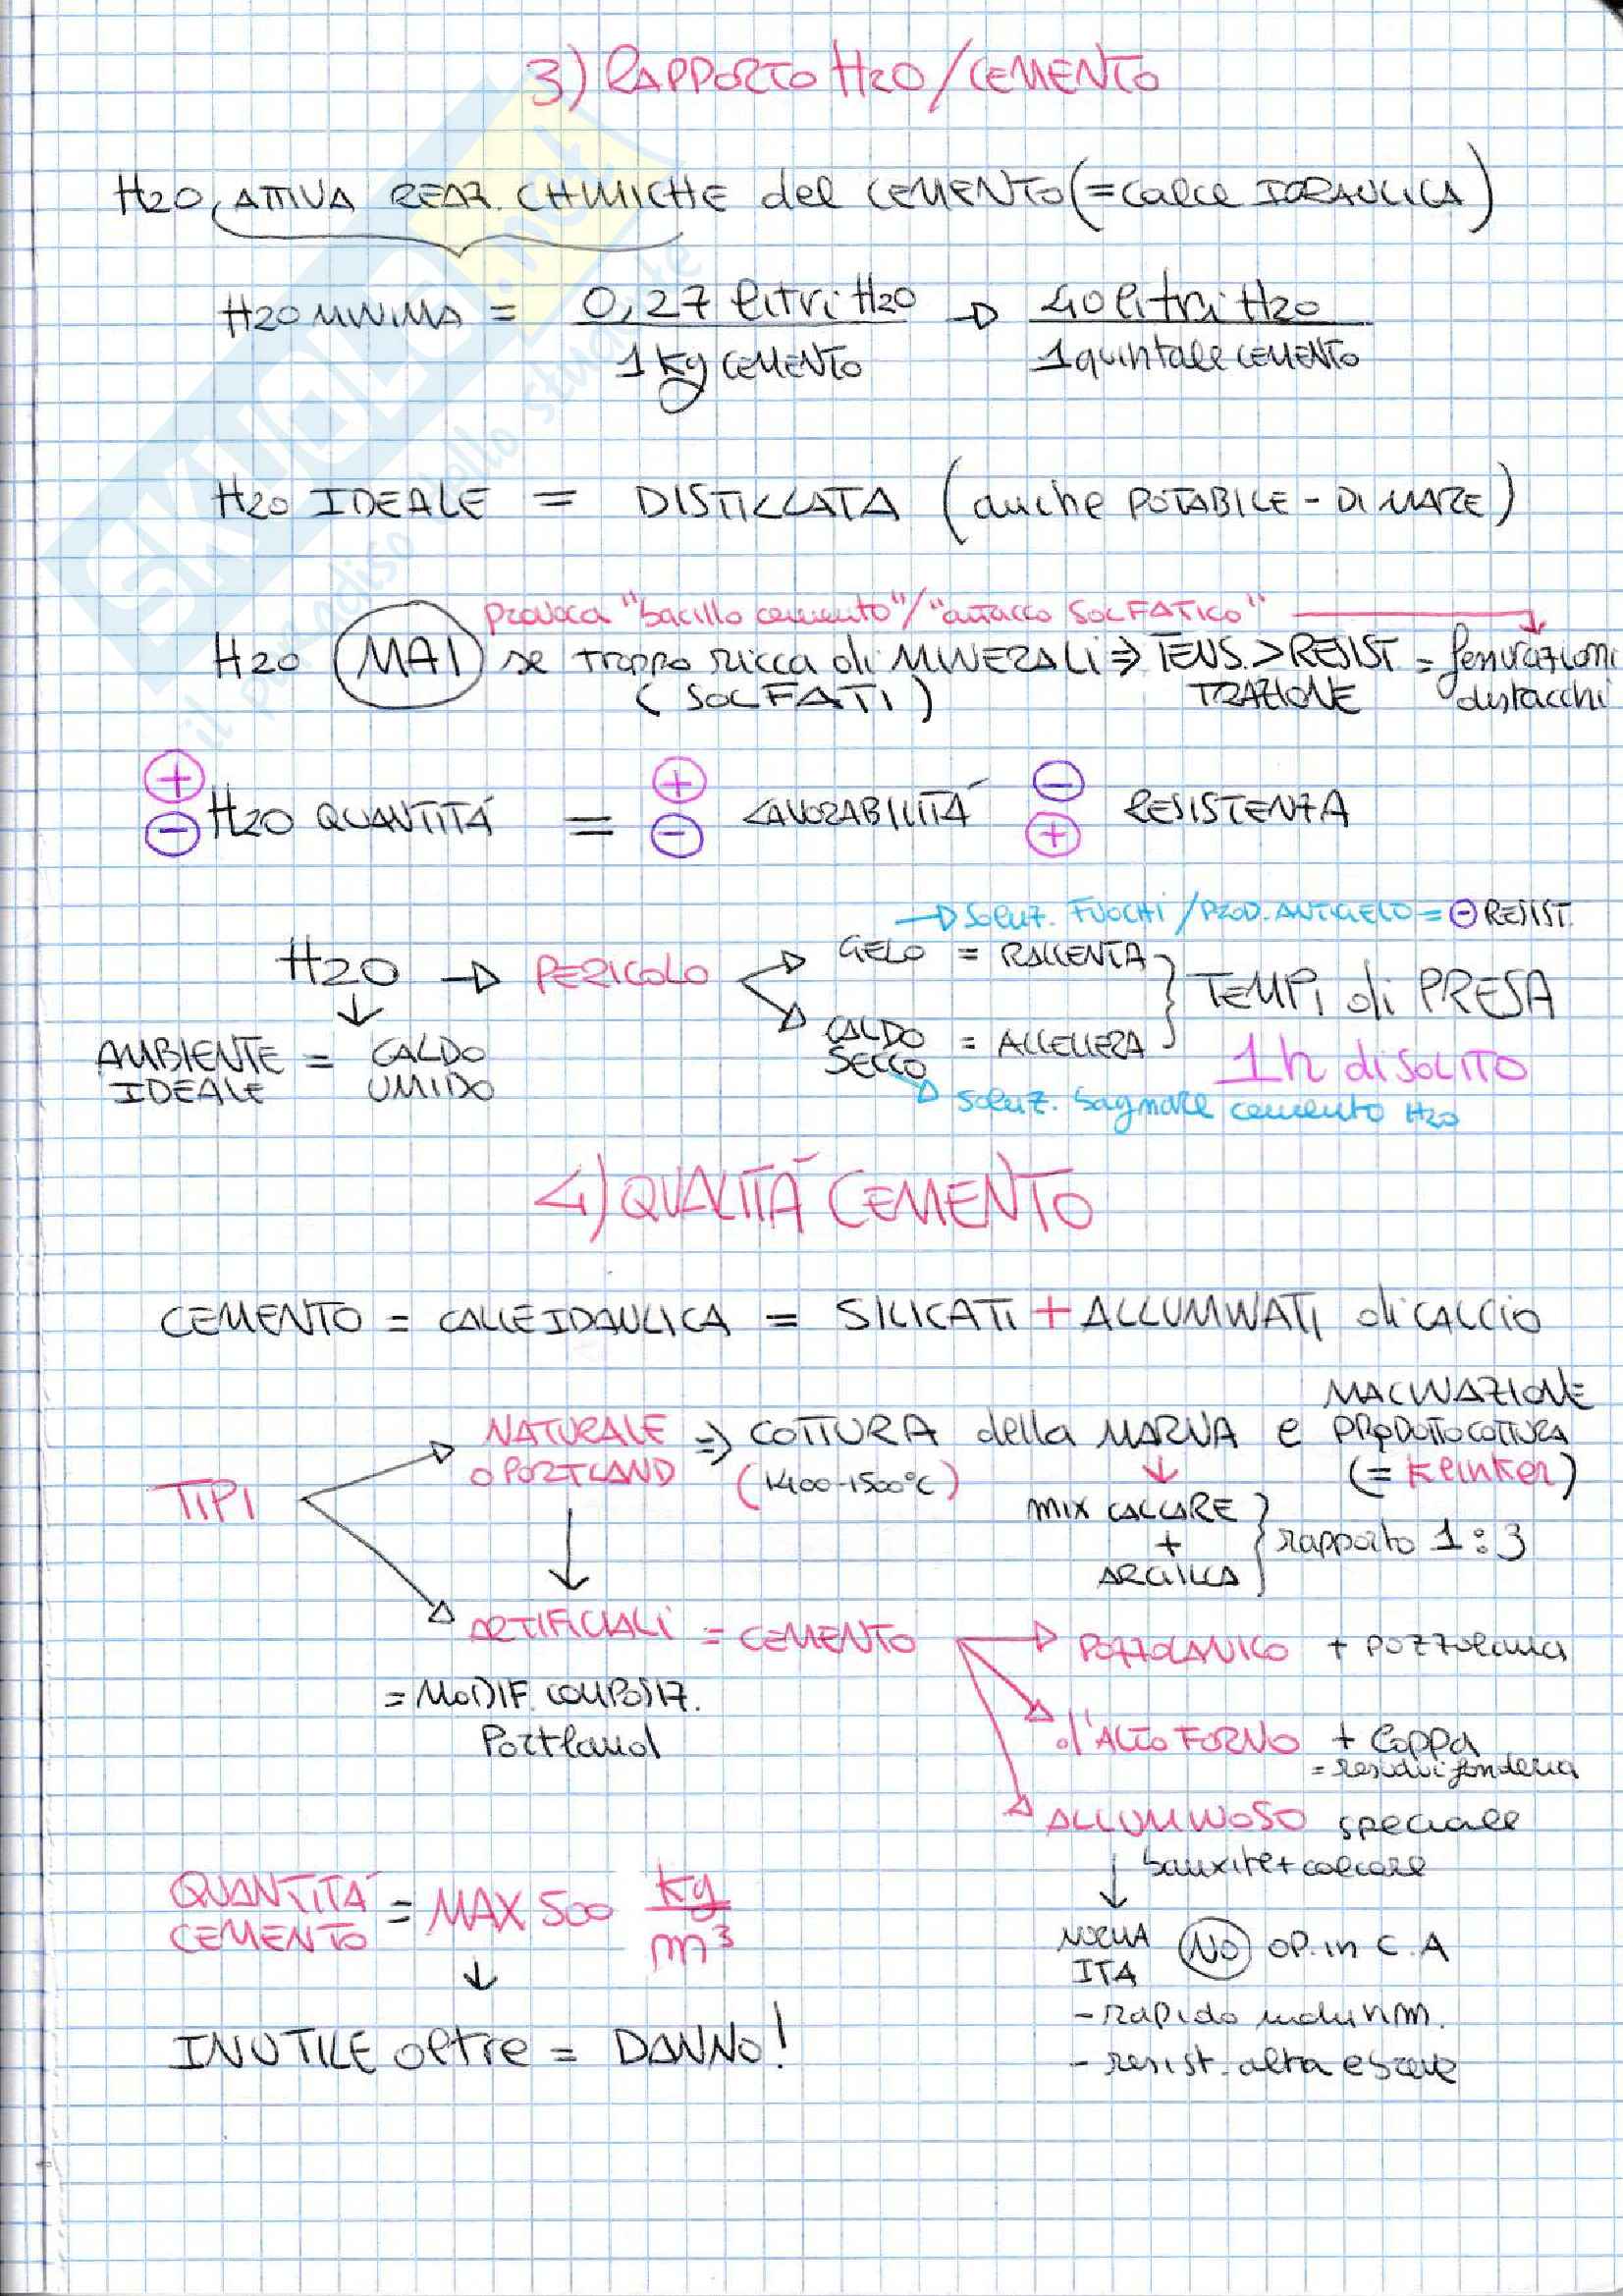 3) RAPPORTO H2O/CEMENTO
H2O ATTIVA REAZ. CHIMICHE del CEMENTO (=calce IDRAULICA)
H2O MINIMA = 0,27 litri H2O / 1 kg CEMENTO → 40 litri H2O / 1 quintale CEMENTO
H2O IDEALE = DISTILLATA (anche POTABILE - DI MARE)
provoca "bacillo cemento"/"attacco SOLFATICO"
H2O MAI se troppo ricca di MINERALI ⇒ TENS. > RESIST = fessurazioni
(SOLFATI) TRAZIONE distacchi
+ + −
H2O QUANTITÁ = LAVORABILITÁ RESISTENZA
− − +
→ soluz. FUOCHI / PROD. ANTIGELO = − RESIST.
H2O → PERICOLO GELO = RALLENTA } TEMPI di PRESA
AMBIENTE IDEALE = CALDO UMIDO
CALDO SECCO = ACCELLERA 1h di SOLITO
→ soluz. bagnare cemento H2O
4) QUALITÁ CEMENTO
CEMENTO = CALCE IDAULICA = SILICATI + ALLUMINATI di CALCIO
MACINAZIONE
TIPI NATURALE ⇒ COTTURA della MARNA e PRODOTTO COTTURA
O PORTLAND (1400-1500°C) (= Klinker)
MIX CALCARE + ARGILLA } rapporto 1:3
ARTIFICIALI = CEMENTO POZZOLANICO + pozzolana
= MODIF. COMPOSIZ.
Portland
d'ALTO FORNO + loppa
= residui fonderia
ALLUMINOSO speciale
bauxite + calcare
QUANTITÁ CEMENTO = MAX 500 kg/m³
NORMA ITA NO OP. in C.A
INUTILE oltre = DANNO!
- rapido indurim.
- resist. alta e breve
SKUOLA.net
il paradiso dello studente